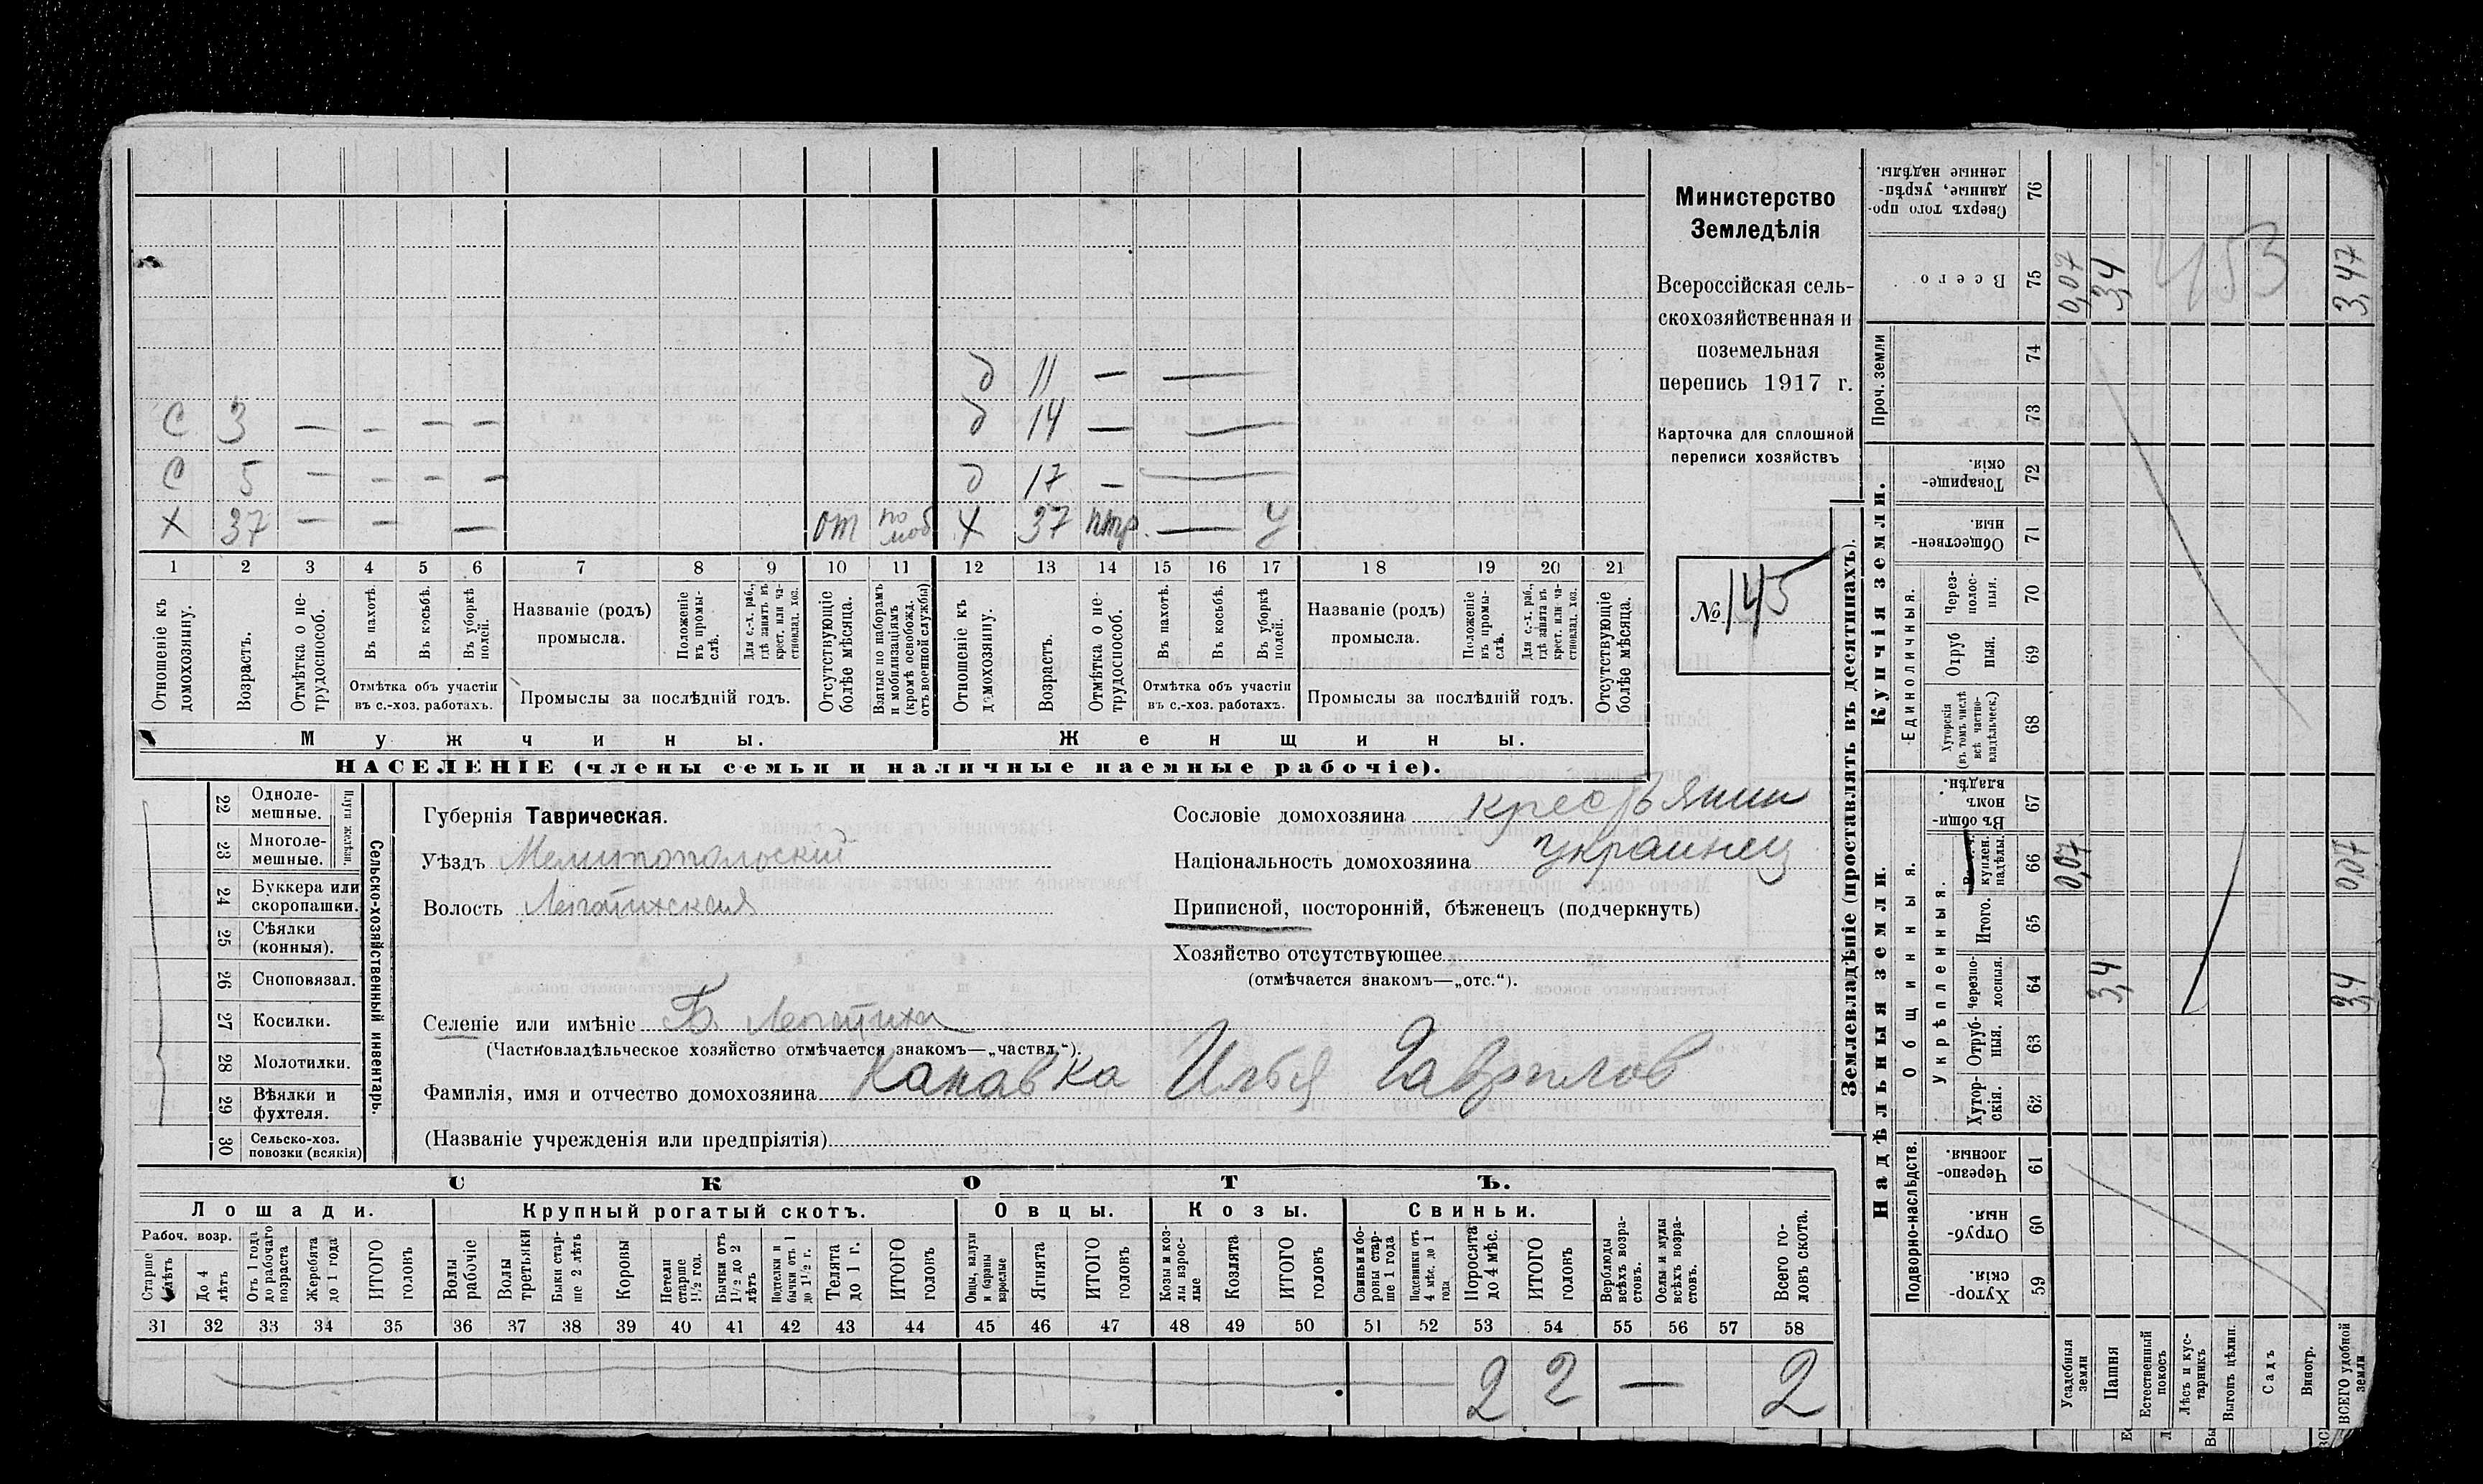 С 3 — — — —
С 5 — — — —
Х 37 — — — от по моб
д 11 — —
д 14 — —
д 17 — —
Х 37 нтр. — У
1 2 3 4 5 6 7 8 9 10 11 12 13 14 15 16 17 18 19 20 21
Отношеніе къ домохозяину.
Возрастъ.
Отмѣтка о не-
трудоспособ.
Въ пахотѣ.
Въ косьбѣ.
Въ уборкѣ полей.
Отмѣтка объ участіи
въ с.-хоз. работахъ.
Названіе (родъ)
промысла.
Положеніе въ промы-
слѣ.
Для с.-х. раб.,
гдѣ занятъ въ
крест. или ча-
стновлад. хоз.
Промыслы за послѣдній годъ.
Отсутствующіе
болѣе мѣсяца.
Взятые по наборамъ
и мобилизаціямъ
(кромѣ освобожд.
отъ военной службы)
Отношеніе къ
домохозяину.
Возрастъ.
Отмѣтка о не-
трудоспособ.
Въ пахотѣ.
Въ косьбѣ.
Въ уборкѣ
полей.
Отмѣтка объ участіи
въ с.-хоз. работахъ.
Названіе (родъ)
промысла.
Положеніе
въ промы-
слѣ.
Для с.-х. раб.,
гдѣ занята въ
крест. или ча-
стновлад. хоз.
Промыслы за послѣдній годъ.
Отсутствующіе
болѣе мѣсяца.
Мужчины.
Женщины.
НАСЕЛЕНІЕ (члены семьи и наличные наемные рабочіе).
Министерство
Земледѣлія
Всероссійская сель-
скохозяйственная и
поземельная
перепись 1917 г.
Карточка для сплошной
переписи хозяйствъ
№ 145
22 Одноле-
мешные.
23 Многоле-
мешные.
24 Буккера или
скоропашки.
25 Сѣялки
(конныя).
26 Сноповязал.
27 Косилки.
28 Молотилки.
29 Вѣялки и
фухтеля.
30 Сельско-хоз.
повозки (всякія)
Сельско-хозяйственный инвентарь.
Губернія Таврическая.
Уѣздъ Мелитопольскій
Волость Лепатихская
Сословіе домохозяина крестьянин
Національность домохозяина украинец
Приписной, посторонній, бѣженецъ (подчеркнуть)
Хозяйство отсутствующее
(отмѣчается знакомъ—„отс.“).
Селеніе или имѣніе Б. Лепатиха
(Частновладѣльческое хозяйство отмѣчается знакомъ—„частвл.“).
Фамилія, имя и отчество домохозяина Канавка Илья Гаврилов
(Названіе учрежденія или предпріятія)
СКОТЪ.
Лошади. Крупный рогатый скотъ. Овцы. Козы. Свиньи.
Рабоч. возр.
Старше
лѣтъ
До 4
лѣтъ
Отъ 1 года
до рабочаго
возраста
Жеребята
до 1 года
ИТОГО
головъ
Волы
рабочіе
Волы
третьяки
Быки стар-
ше 2 лѣтъ
Коровы
Нетели
старше
1½ год.
Бычки отъ
1½ до 2
лѣтъ
Подтелки и
бычки отъ 1
до 1½ г.
Телята
до 1 г.
ИТОГО
головъ
Овцы, валухи
и бараны
взрослые
Ягнята
ИТОГО
головъ
Козы и коз-
лы взрос-
лые
Козлята
ИТОГО
головъ
Свиньи и бо-
ровы стар-
ше 1 года
Подсвинки отъ
4 мѣс. до 1
года
Поросята
до 4 мѣс.
ИТОГО
головъ
Верблюды
всѣхъ возра-
стовъ.
Ослы и мулы
всѣхъ возра-
стовъ.
Всего го-
ловъ скота.
31 32 33 34 35 36 37 38 39 40 41 42 43 44 45 46 47 48 49 50 51 52 53 54 55 56 57 58
2 2 — 2
Землевладѣніе (проставлять въ десятинахъ).
Надѣльныя земли.
Купчія земли.
Проч. земли
Подворно-наслѣдств.
Общинныя.
Укрѣпленныя.
Единоличныя.
Хутор-
скія.
59
Отруб-
ныя.
60
Черезпо-
лосныя.
61
Хутор-
скія.
62
Отруб-
ныя.
63
Черезпо-
лосныя.
64
Итого.
65
куплен.
надѣлы.
66
Въ общи-
номъ
владѣн.
67
Хуторскія
(въ томъ числѣ
всѣ частно-
владѣльческ.)
68
Отруб
ныя.
69
Через-
полос-
ныя.
70
Обществен-
ныя.
71
Товарище-
скія.
72
73
74
Всего
75
Сверхъ того про-
данные, укрѣп-
ленные надѣлы.
76
Усадебныя
земли
0,07 0,07
Пашня
3,4 3,4
Естественный
покосъ
Лѣсъ и кус-
тарникъ
Выгонъ цѣлин.
Садъ
Виногр.
ВСЕГО удобной
земли
3,4 0,07 3,47
453